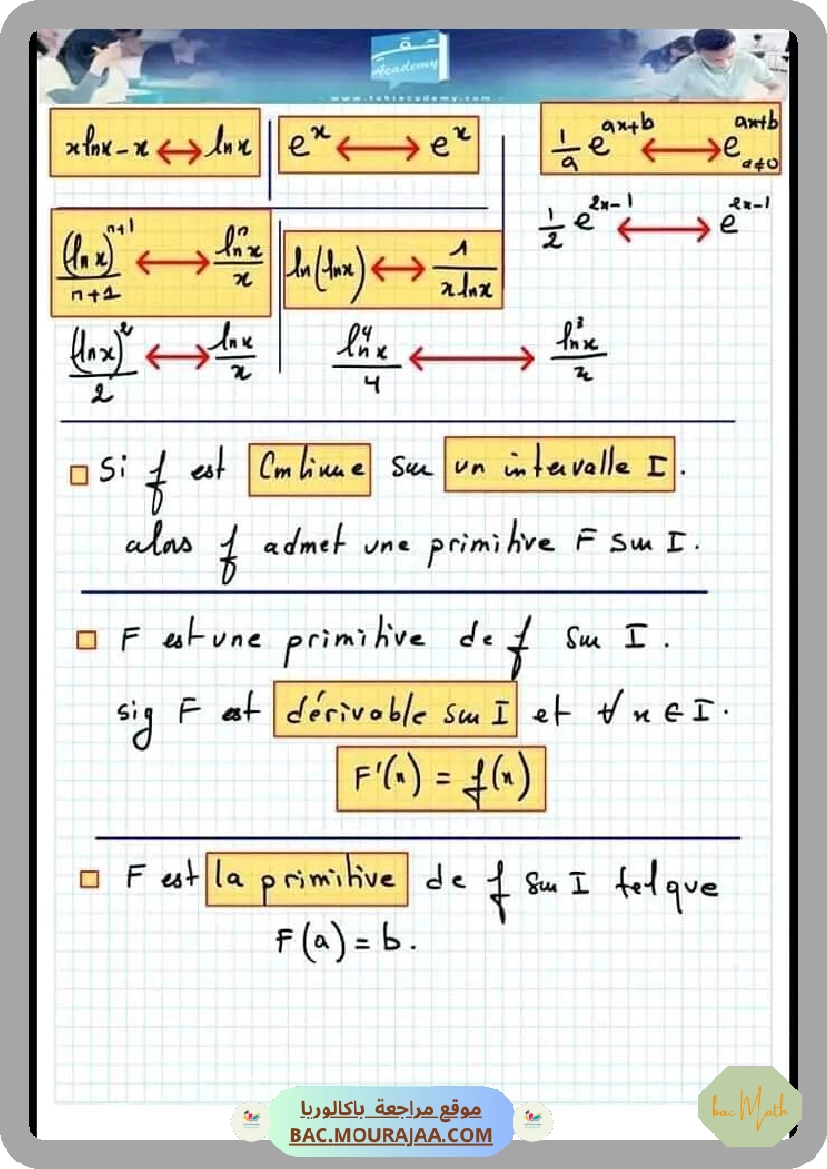 Academy
x ln x − x ↔ ln x
e^x ↔ e^x
1/a e^(ax+b) ↔ e^(ax+b) a≠0
1/2 e^(2x−1) ↔ e^(2x−1)
(ln x)^(n+1)/(n+1) ↔ ln^n x/x
ln(ln x) ↔ 1/(x ln x)
(ln x)^2/2 ↔ ln x/x
ln^4 x/4 ↔ ln^3 x/x
Si f est Continue sur un intervalle I.
alors f admet une primitive F sur I.
F est une primitive de f sur I.
sig F est dérivable sur I et ∀ x ∈ I.
F'(x) = f(x)
F est la primitive de f sur I tel que
F(a) = b.
موقع مراجعة باكالوريا
BAC.MOURAJAA.COM
bac Math